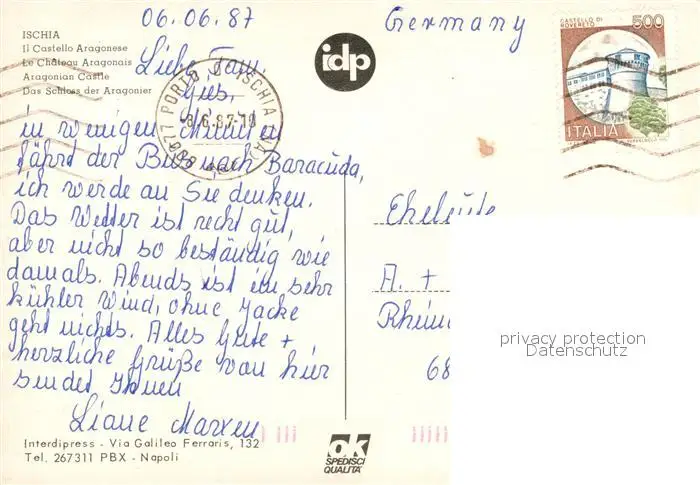 06.06.87
Germany
ISCHIA
Il Castello Aragonese
Le Château Aragonais
Aragonian Castle
Das Schloss der Aragonier
Liebe Fam.
Gies,
in wenigen Minuten
fährt der Bus nach Baracuda,
ich werde an Sie denken.
Das Wetter ist recht gut,
aber nicht so beständig wie
damals. Abends ist ein sehr
kühler Wind, ohne Jacke
geht nichts. Alles Gute +
herzliche Grüße von hier
sendet Ihnen
Liane Marxen
Interdipress - Via Galileo Ferraris, 132
Tel. 267311 PBX - Napoli
idp
80077 PORTO D'ISCHIA (NA)
8.6.87-10
CASTELLO DI
ROVERETO
500
ITALIA
Eheleute
A. +
Rhein
68
privacy protection
Datenschutz
ok
SPEDISCI
QUALITÀ